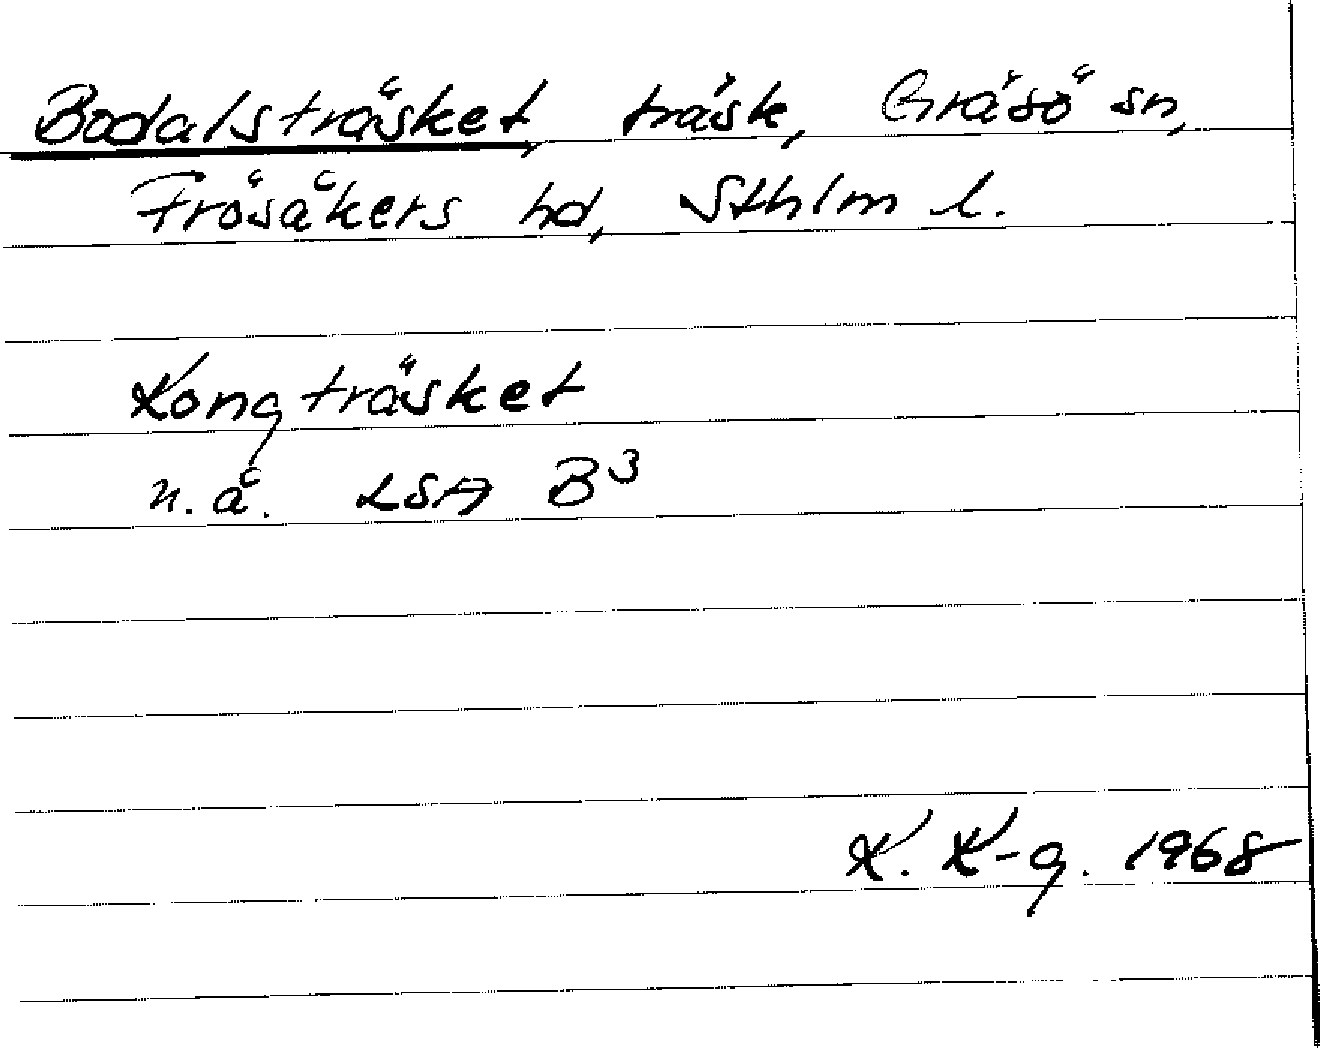 Bodalsträsket, träsk, Gräsö sn,
Frösåkers hd, Sthlm l.
Kongträsket
n.å. LSA B³
K. K-g. 1968